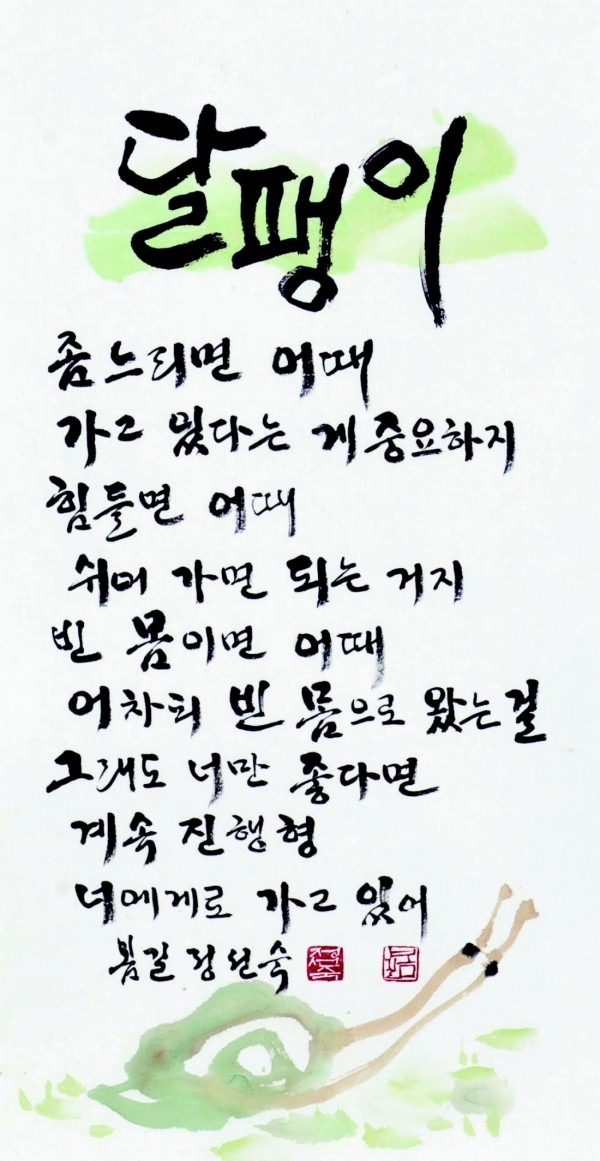 달팽이
좀 느리면 어때
가고 있다는 게 중요하지
힘들면 어때
쉬어 가면 되는 거지
빈 몸이면 어때
어차피 빈 몸으로 왔는걸
그래도 너만 좋다면
계속 진행형
너에게로 가고 있어
봄길 정선숙